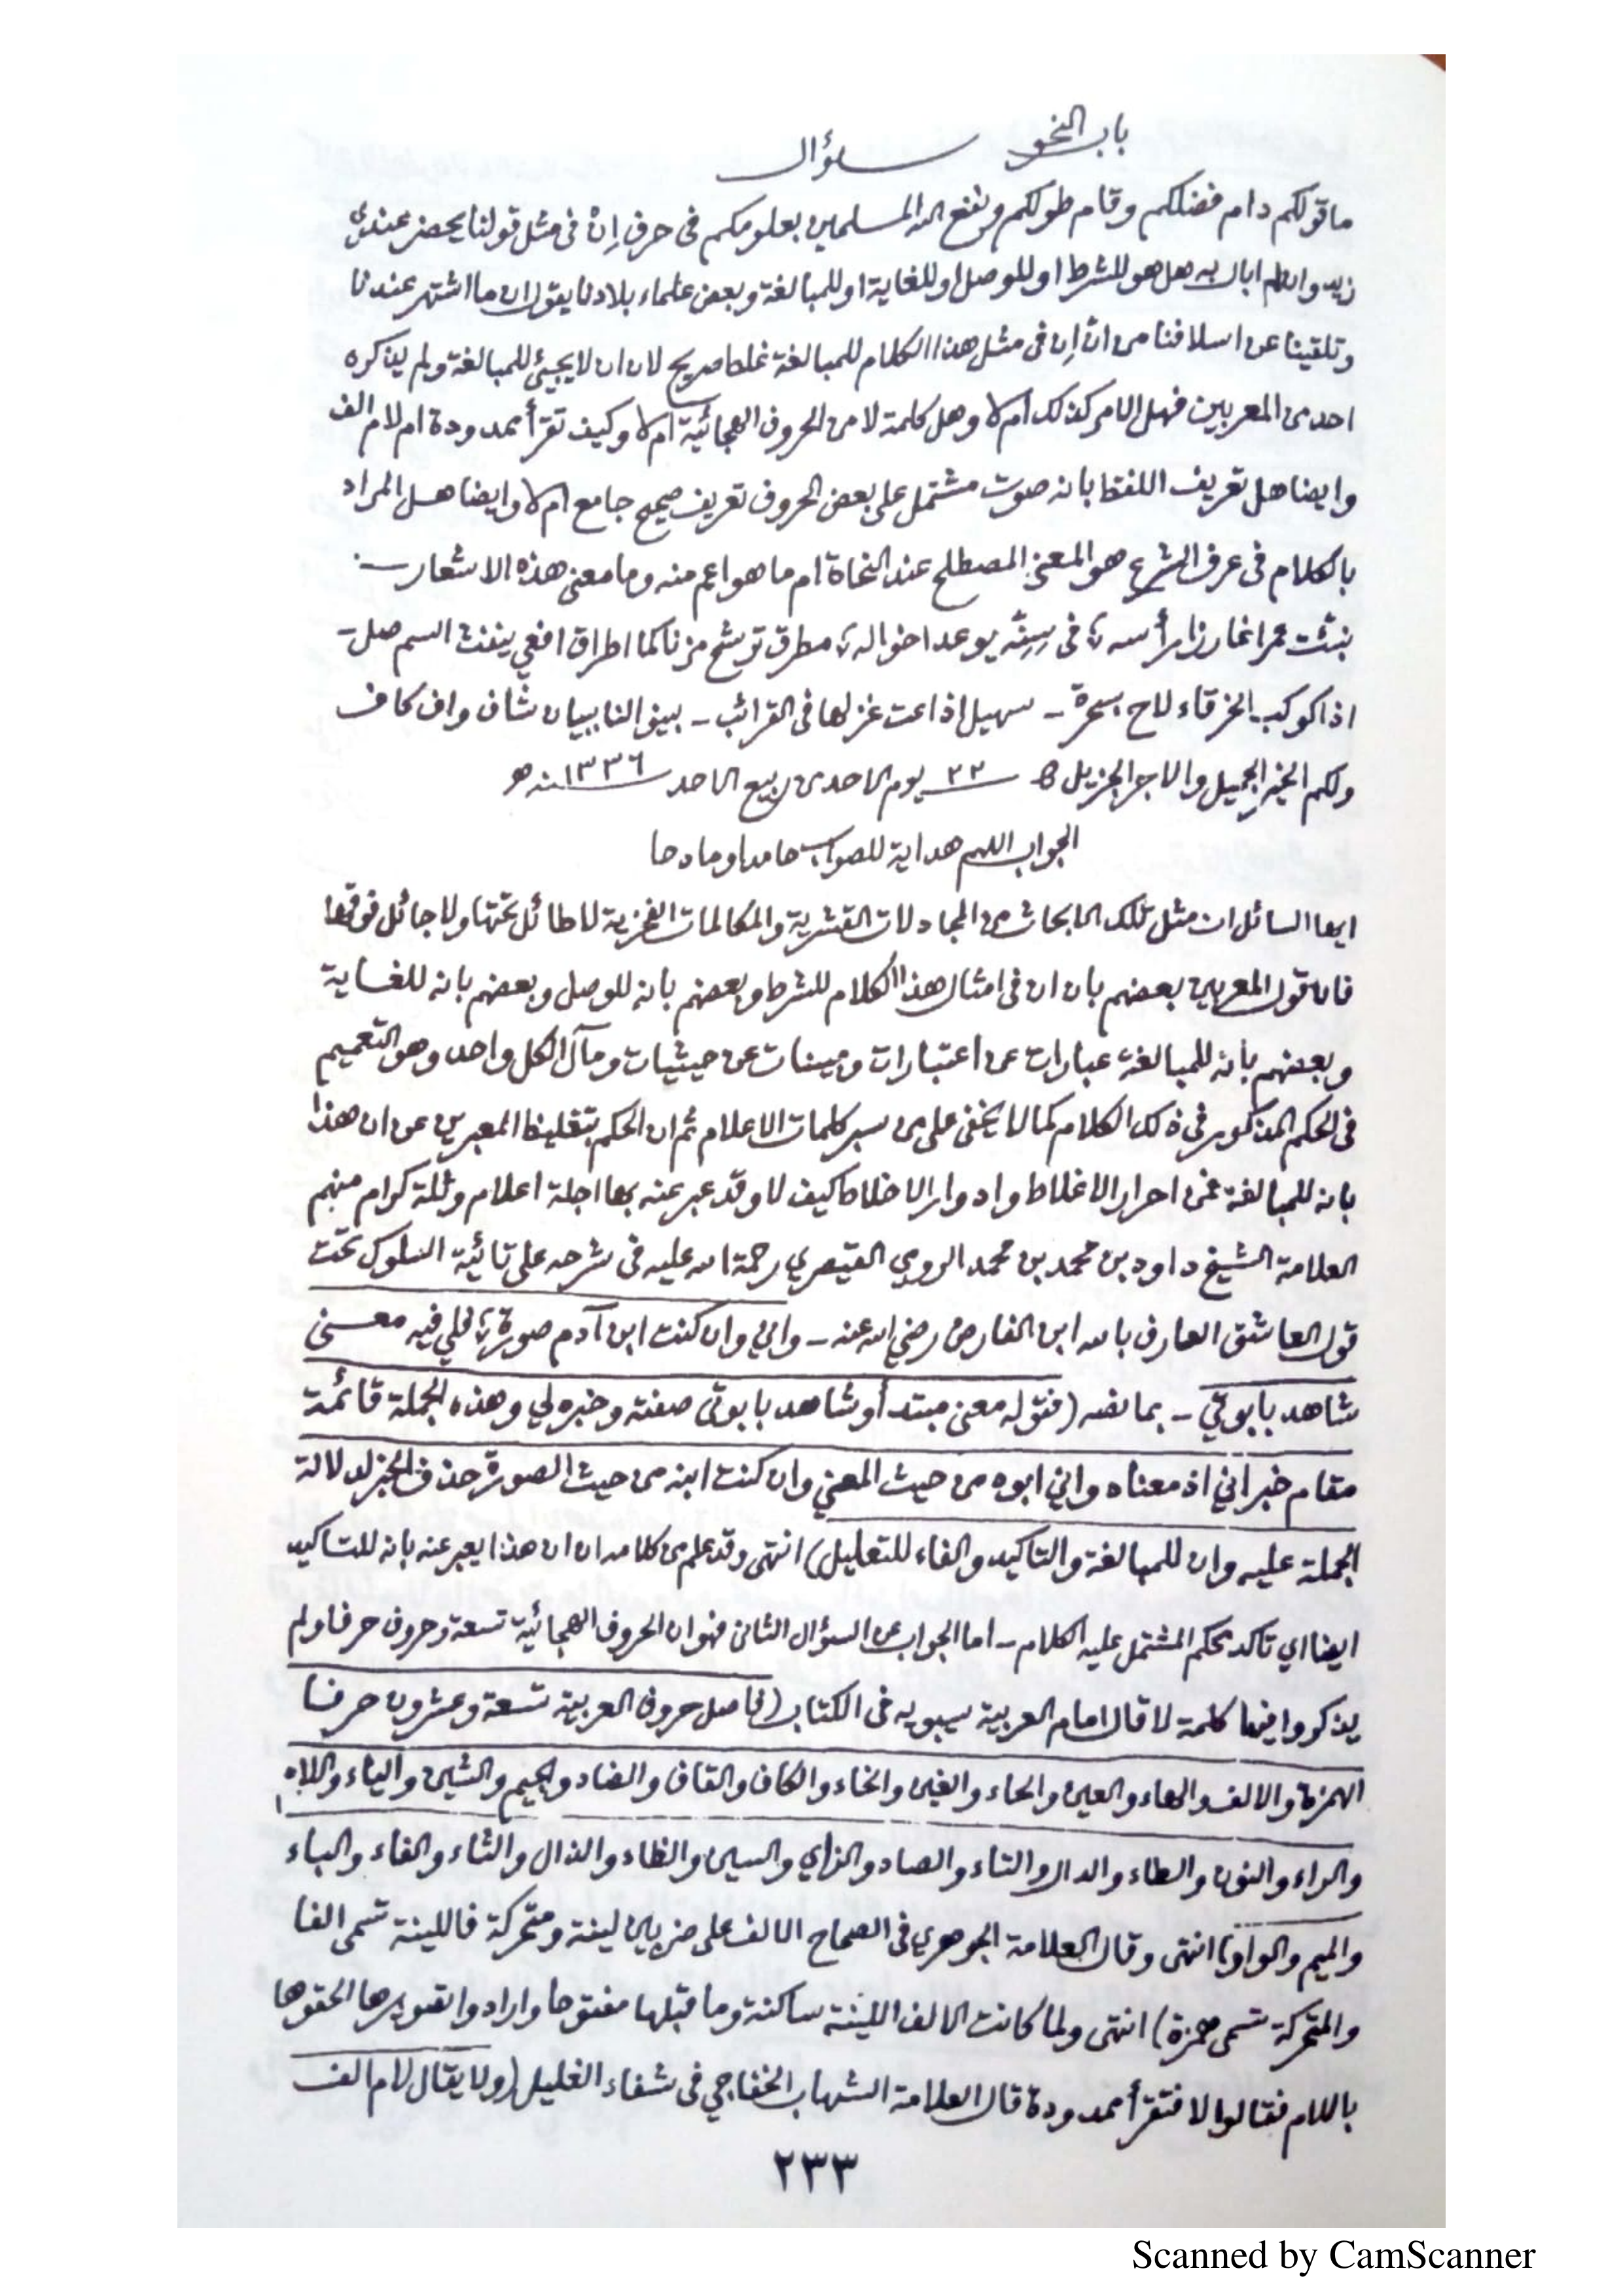 باب النحو سؤال
ما قولكم دام فضلكم وقام طولكم ونفع الله المسلمين بعلومكم فى حرف اِنْ فى مثل قولنا يحضر عندى
زيد وان لم ابال به هل هو للشرط او للوصل او للغاية او للمبالغة وبعض علماء بلادنا يقول ان ما اشتهر عندنا
وتلقينا عن اسلافنا من انّ اِن فى مثل هذا الكلام للمبالغة غلط صريح لان ان لا يجيئ للمبالغة ولم يذكره
احد من المعربين فهل الامر كذلك ام لا وهل كلمة لا من الحروف الهجائية ام لا وكيف تقرأ ممدودة ام لام الف
وايضا هل تعريف اللفظ بانه صوت مشتمل على بعض الحروف تعريف صحيح جامع ام لا وايضا هل المراد
بالكلام فى عرف الشرع هو المعنى المصطلح عند النحاة ام ما هو اعم منه وما معنى هذه الاشعار
نبئت عمرا غارزا رأسه ؛ فى سِنَة يوعد اخواله ؛ مطرق ترشح مزنا كما اطراق افعي ينفث السم صل -
اذا كوكب الخرقاء لاح بسحرة - سهيل اذاعت غزلها فى القرائب - بينوا لنا ببيان شاف واف كاف
ولكم الخير الجميل والاجر الجزيل ٢٢ يوم الاحد من ربيع الاحد ١٣٣٦سنه ه
الجواب اللهم هداية للصواب حامدا ومادحا
ايها السائل ان مثل تلك الابحاث من المجادلات القشرية والمكالمات الفخرية لا طائل تحتها ولا جائل فوقها
فان قول المعربين بعضهم بان ان فى امثال هذا الكلام للشرط وبعضهم بانه للوصل وبعضهم بانه للغاية
وبعضهم بأنه للمبالغة عبارات عن اعتبارات ومبينات عن حيثيات ومآل الكل واحد وهو التعميم
فى الحكم المذكور فى ذلك الكلام كما لا يخفى على من سبر كلمات الاعلام ثم ان الحكم بتغليط المعبرين عن ان هذا
بانه للمبالغة فمن احرار الاغلاط وادوار الاخلاط كيف لا وقد عبر عنه بها اجلة اعلام وثلة كرام منهم
العلامة الشيخ داود بن محمد بن محمد الرومي القيصري رحمة الله عليه فى شرحه على تائية السلوك تحت
قول العاشق العارف بالله ابن الفارض رضي الله عنه - واني وان كنت ابن آدم صورة ؛ فلي فيه معنى
شاهد بابوتي - بما نصه (فقوله معنى مبتدأ وشاهد بابوتى صفته وخبره لي وهذه الجملة قائمة
مقام خبر اني اذ معناه واني ابوه من حيث المعني وان كنت ابنه من حيث الصورة حذف الخبر لدلالة
الجملة عليه وان للمبالغة والتاكيد والفاء للتعليل) انتهى وقد علم من كلامه ان ان هذا يعبر عنه بانه للتاكيد
ايضا اي تاكد حكم المشتمل عليه الكلام - اما الجواب عن السؤال الثانى فهو ان الحروف الهجائية تسعة وحروف حرفا ولم
يذكروا فيها كلمة لا قال امام العربية سيبويه فى الكتاب (فاصل حروف العربية تسعة وعشرون حرفا
الهمزة والالف والهاء والعين والحاء والغين والخاء والكاف والقاف والضاد والجيم والشين والياء واللام
والراء والنون والطاء والدال والتاء والصاد والزاي والسين والظاء والذال والثاء والفاء والباء
والميم والواو) انتهى وقال العلامة الجوهري فى الصحاح الالف على ضربين لينة ومتحركة فاللينة تسمى الفا
والمتحركة تسمى همزة) انتهى ولما كانت الالف اللينة ساكنة وما قبلها مفتوحا وارادوا تصويرها الحقوها
باللام فقالوا لا فتقرأ ممدودة قال العلامة الشهاب الخفاجي فى شفاء الغليل (ولا يقال لام الف
٢٣٣
Scanned by CamScanner